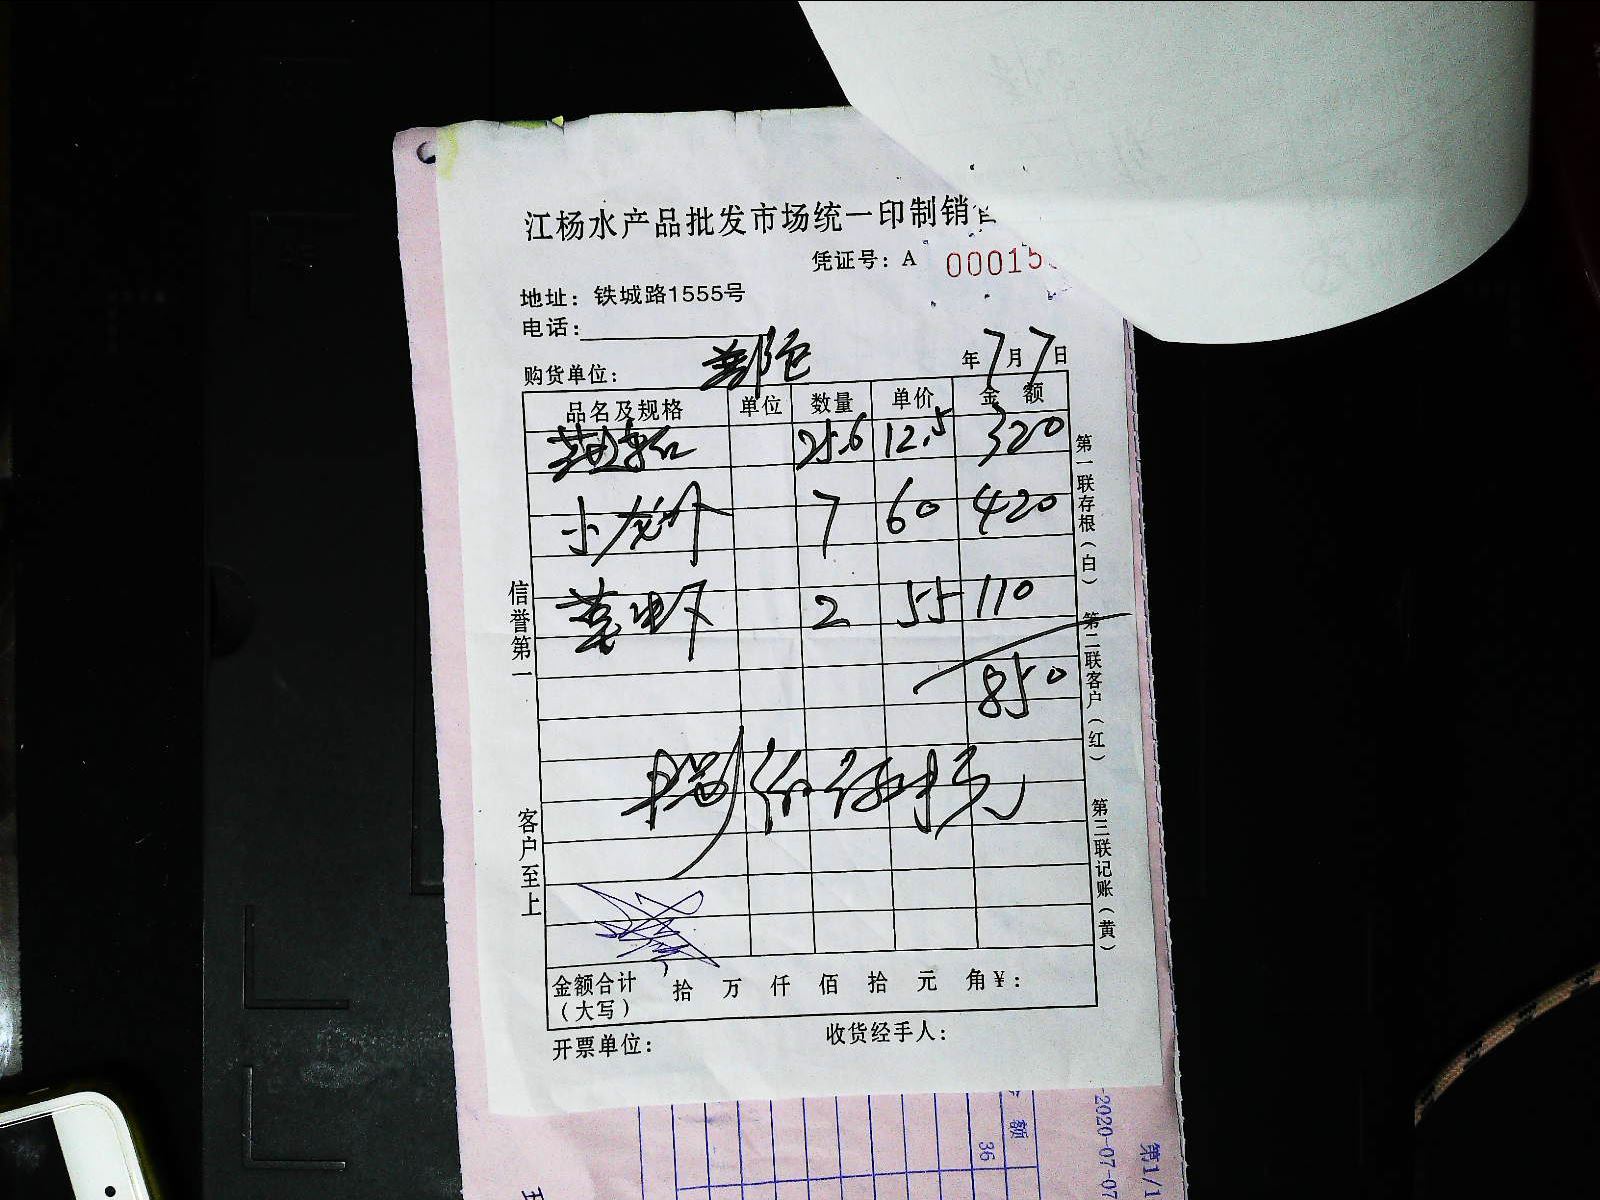 江杨水产品批发市场统一印制销
凭证号：A 00015
地址：铁城路1555号
电话：
购货单位：
年7月7日
品名及规格 单位 数量 单价 金额
25.6 12.5 320
小龙虾 7 60 420
2 55 110
850
捌佰伍拾元
金额合计（大写） 拾 万 仟 佰 拾 元 角 ¥：
开票单位： 收货经手人：
信誉第一
客户至上
第一联存根（白）
第二联客户（红）
第三联记账（黄）
额
36
-2020-07-07
第1/1